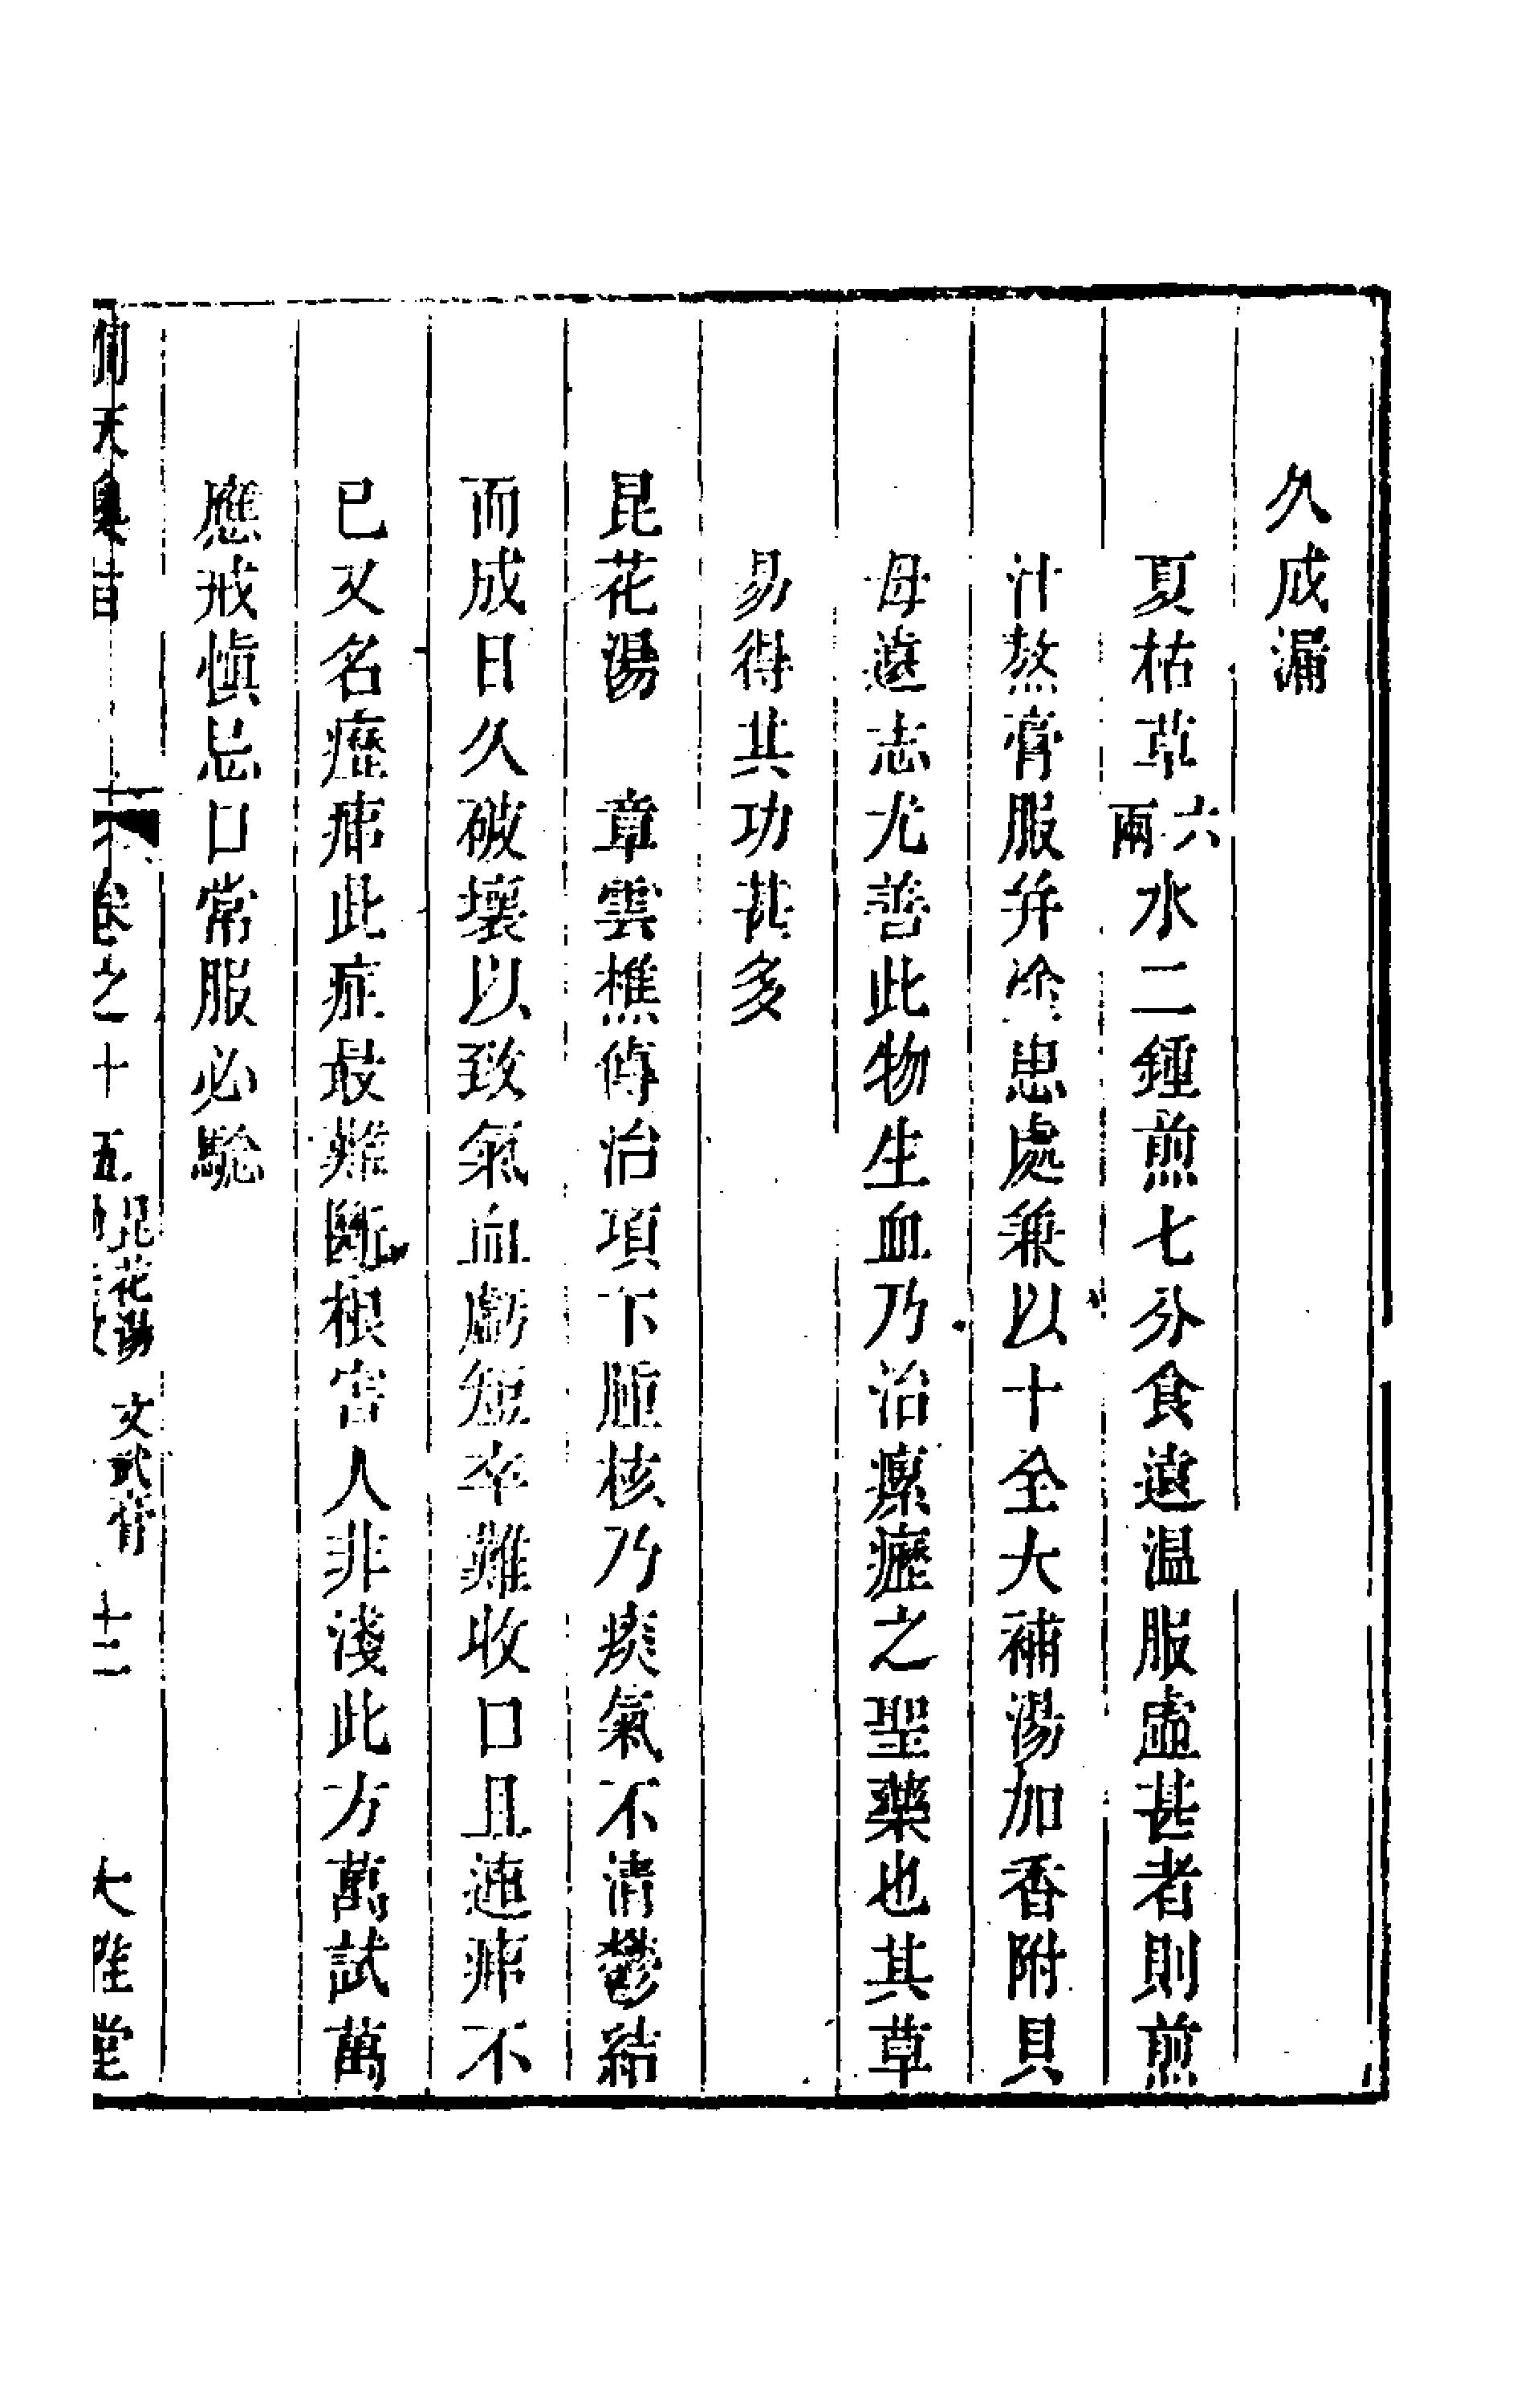 久成漏
夏枯草六兩水二鍾煎七分食遠温服虛甚者則煎
汁熬膏服并塗患處兼以十全大補湯加香附貝
母遠志尤善此物生血乃治瘰癧之聖藥也其草
易得其功甚多
昆花湯　章雲樵傳治項下腫核乃痰氣不清鬱結
而成日久破壞以致氣血虧短卒難收口且連疿不
已又名癧疿此症最難斷根害人非淺此方萬試萬
應戒愼忌口常服必驗
洞天奧旨　卷之十五　昆花湯　文武膏　十二　大雅堂